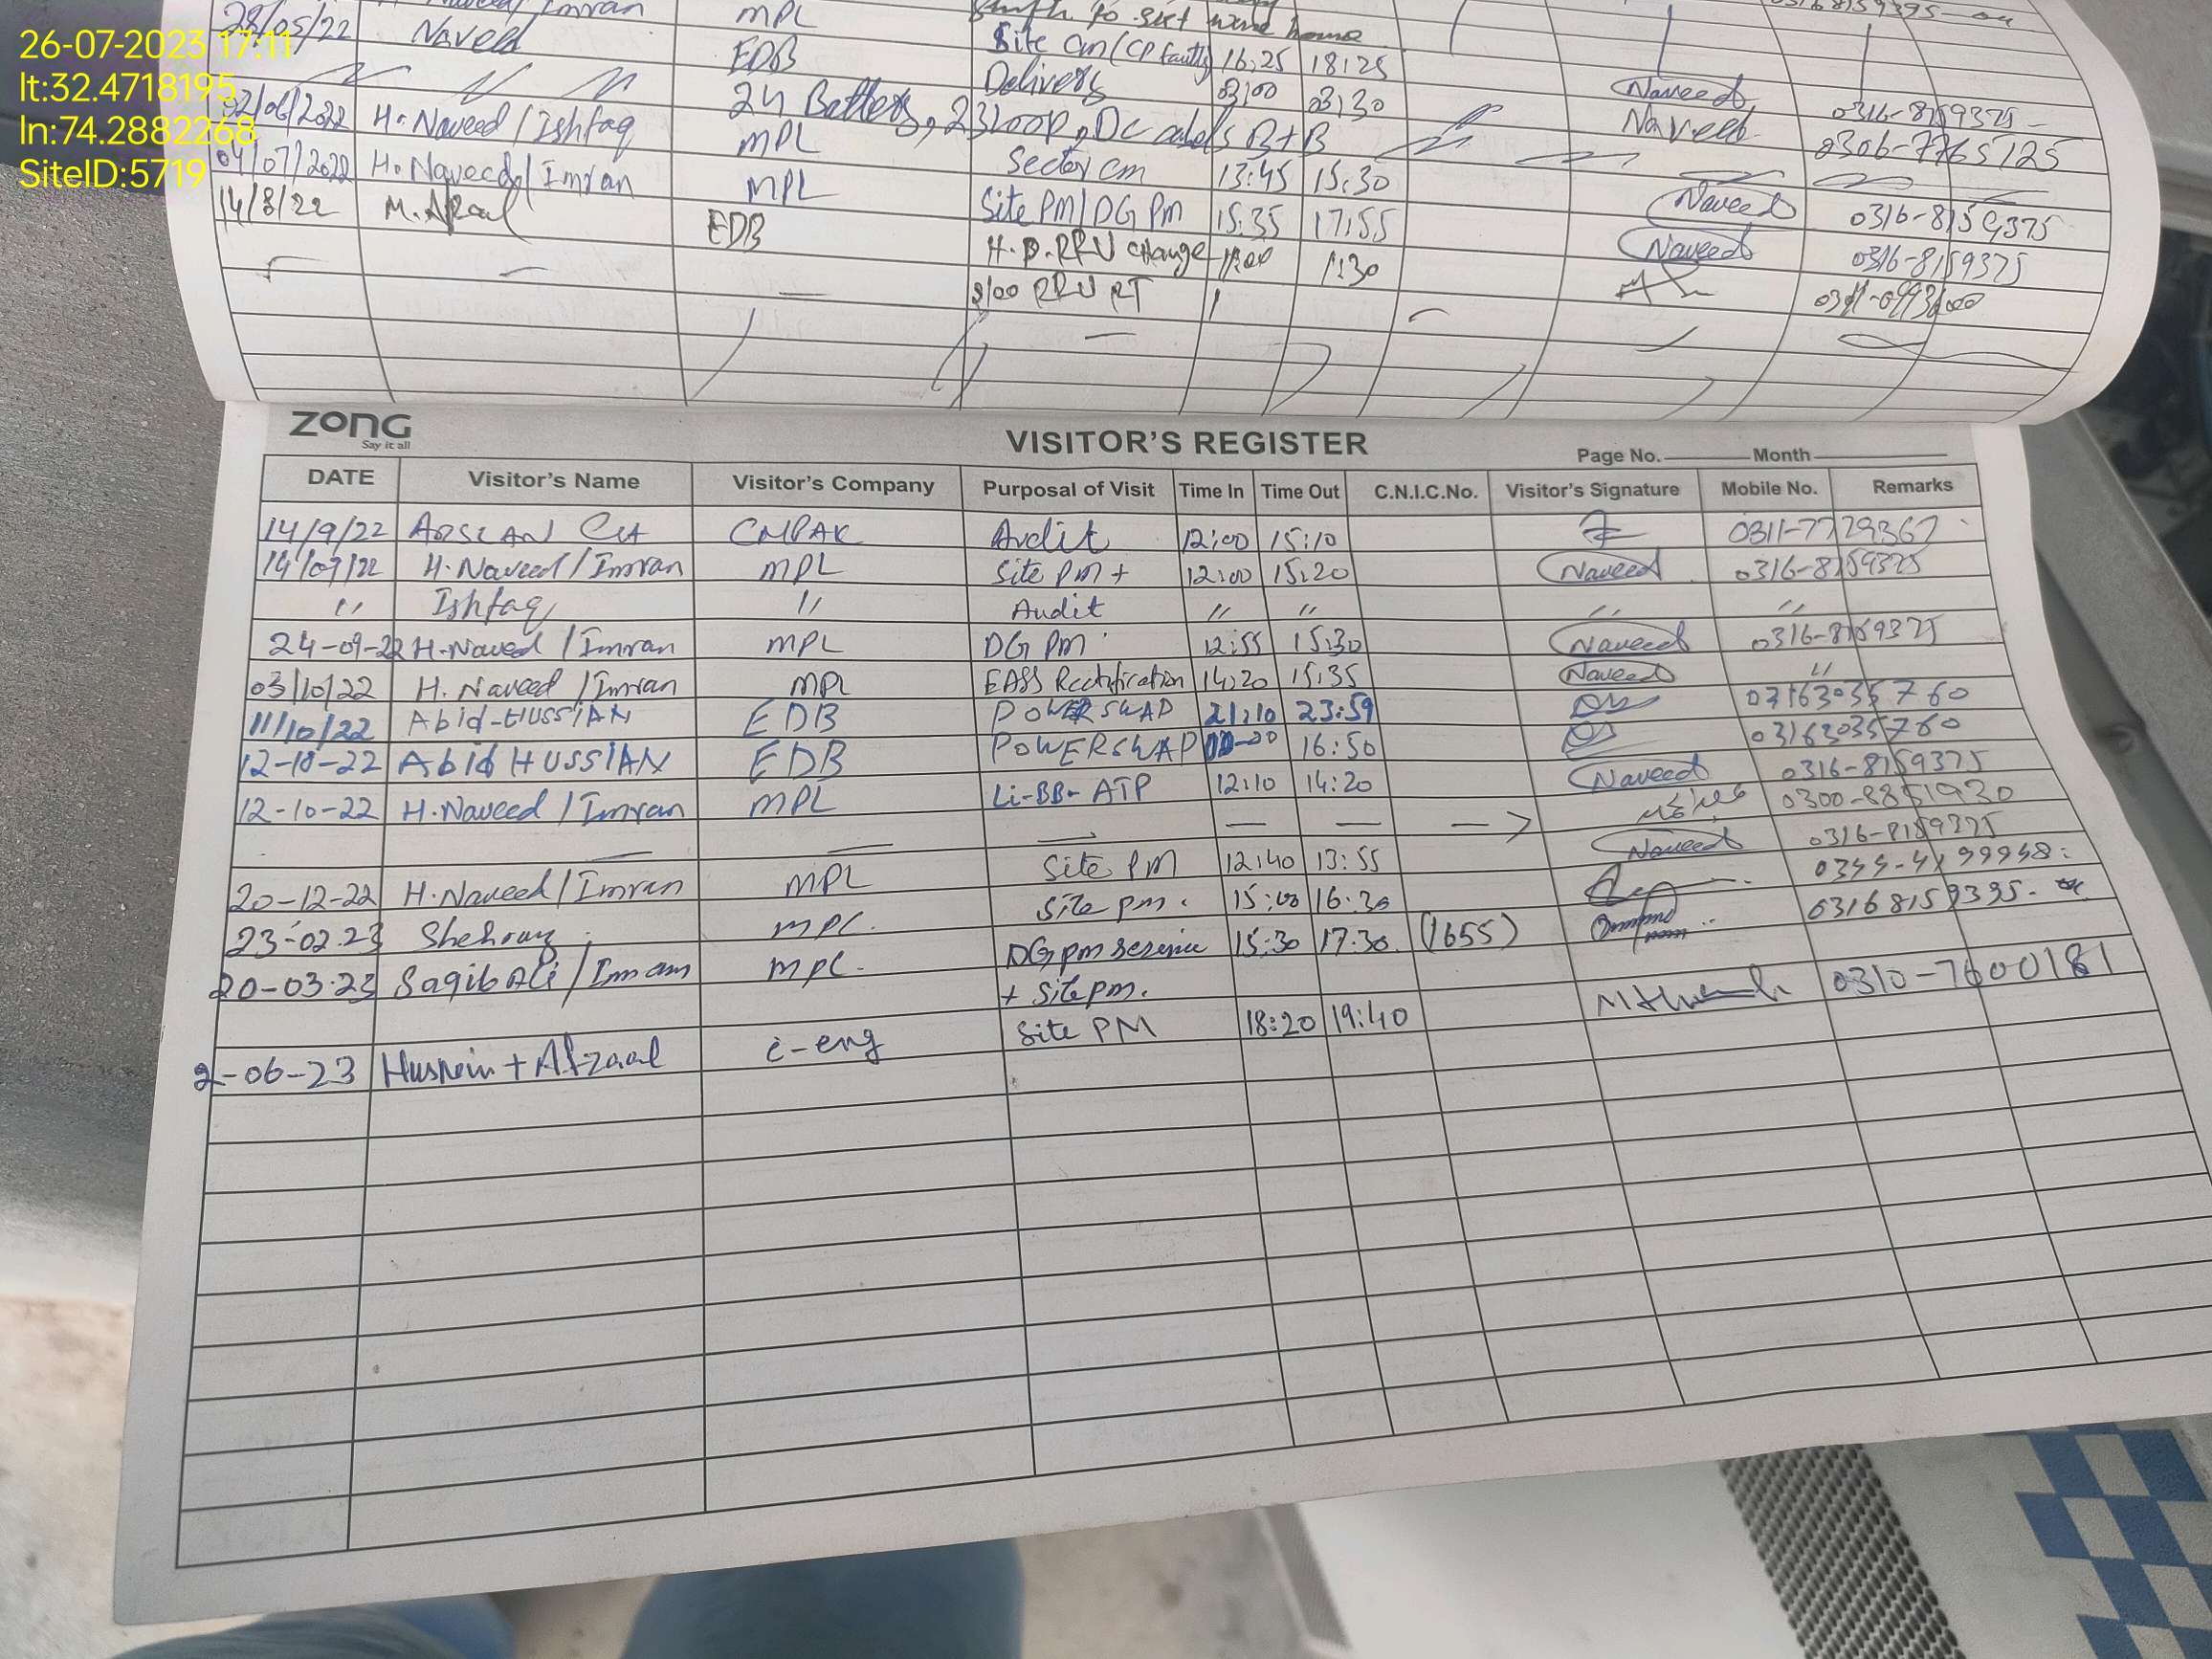 26-07-2023 17:11
lt:32.4718195
ln:74.2882268
SiteID:5719
28/05/22 Naveed EDB Site cm (CP faulty) 16:25 18:25 Naveed 0316-8159375
Delivers 03:00 03:30 Naveed 0306-7765125
24 Battery, 23 Loop, DC cabels B+B
/2022 H. Naveed / Ishfaq MPL Sector cm 13:45 15:30 Naveed 0316-8159375
04/07/2022 H. Naveed / Imran MPL Site PM / DG PM 15:35 17:55 Naveed 0316-8159375
14/8/22 M. EDB H.P. RRU change 1:30
RRU RT
zong
Say it all
VISITOR'S REGISTER
Page No. Month
DATE Visitor's Name Visitor's Company Purposal of Visit Time In Time Out C.N.I.C.No. Visitor's Signature Mobile No. Remarks
14/9/22 ARSLAN CMPAK Audit 12:00 15:10 0311-7729367
14/09/22 H. Naveed / Imran MPL Site PM + 12:00 15:20 Naveed 0316-8159375
" Ishfaq " Audit " " " "
24-09-22 H. Naveed / Imran MPL DG PM 12:55 15:30 Naveed 0316-8159375
03/10/22 H. Naveed / Imran MPL EASS Rectification 14:20 15:35 Naveed "
11/10/22 Abid-HUSSIAN EDB POWERSWAP 21:10 23:59 03163035760
12-10-22 Abid HUSSIAN EDB POWERSWAP 16:50 03163035760
12-10-22 H. Naveed / Imran MPL Li-BB- ATP 12:10 14:20 Naveed 0316-8159375
0300-8851930
20-12-22 H. Naveed / Imran MPL Site PM 12:40 13:55 Naveed 0316-8159375
23-02-23 Shehroz MPL. Site PM. 15:00 16:30
20-03-23 Saqib Ali / Imran MPL. DG PM Service 15:30 17:30 (1655) 03168159395
+ Site PM.
2-06-23 Husnein + Afzaal e-eng Site PM 18:20 19:40 0310-7600181